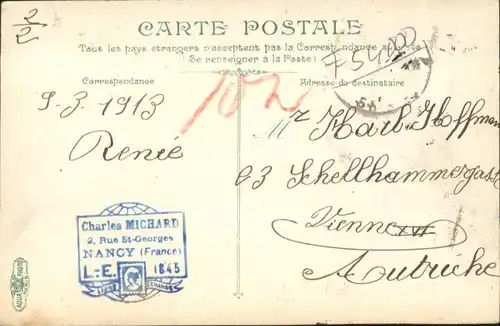 2/2
CARTE POSTALE
Tous les pays étrangers n'acceptent pas la Correspondance au
(Se renseigner à la Poste)
F54000
Correspondance
Adresse du destinataire
9.3.1913
Renée
Mr Karl Hoffmann
23 Schellhammergasse
Vienne XVI
Autriche
Charles MICHARD
2, Rue St-Georges
NANCY (France)
L.-E. 1845